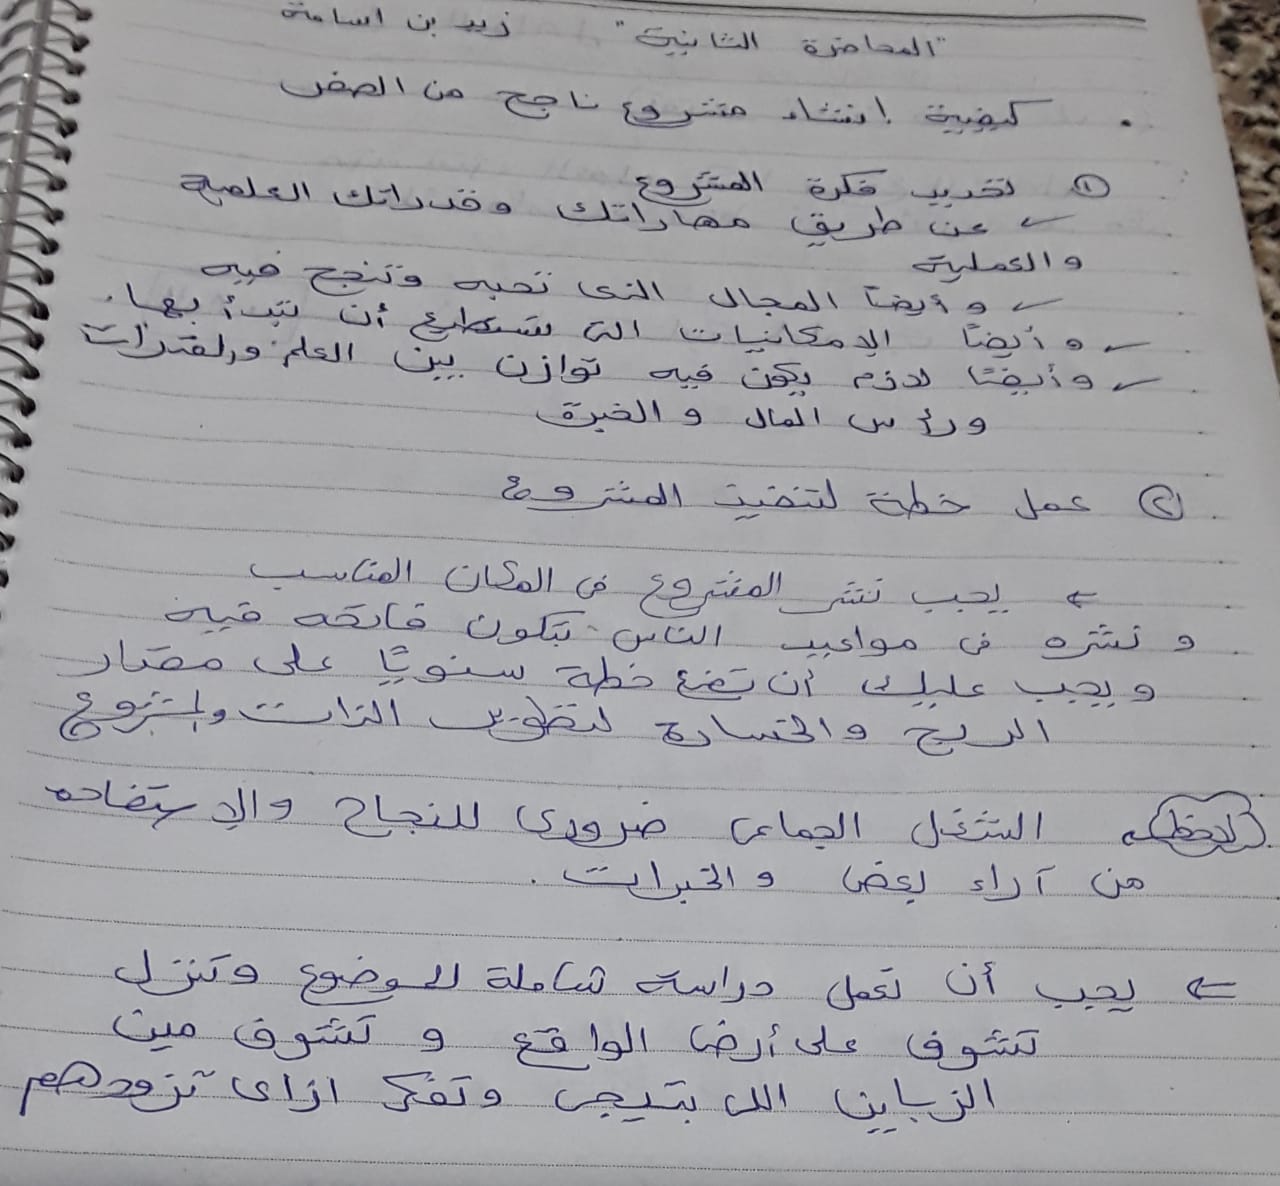 "المحاضرة الثانية" زيد بن اسامة
. كيفية إنشاء مشروع ناجح من الصفر
① تحديد فكرة المشروع
عن طريق مهاراتك وقدراتك العلمية
والعملية
و أيضاً المجال الذى تحبه وتنجح فيه
و أيضاً الإمكانيات التى تستطيع أن تبدأ بها.
و أيضاً لازم يكون فيه توازن بين العلم والقدرات
ورأس المال و الخبرة
② عمل خطة لتنفيذ المشروع
← يجب نشر المشروع فى المكان المناسب
و نشره فى مواعيد الناس بتكون فاتحه فيه
ويجب عليك أن تضع خطة سنويًا على مقدار
الربح والخسارة لتطوير الذات والمشروع
لاحظ الشغل الجماعى ضرورى للنجاح والإستفاده
من آراء بعض والخبرات.
← يجب أن تعمل دراسة شاملة للموضوع وتنزل
تشوف على أرض الواقع و تشوف مين
الزباين اللى بتيجى وتفكر ازاى تزودهم